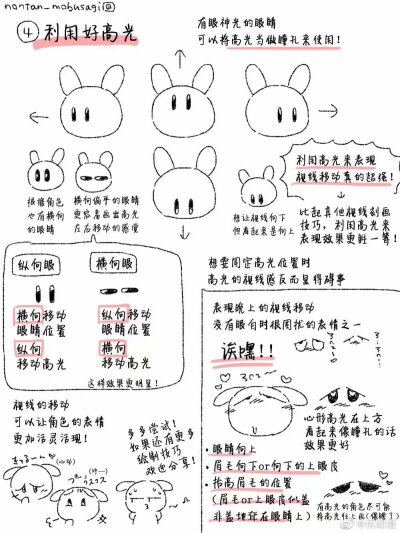 nontan_mobusagi@
④ 利用好高光
有眼神光的眼睛
可以将高光当做瞳孔来使用!
横向偏平的眼睛
更容易画出高光
左右移动的感觉
也有横向
的眼睛
利用高光来表现
视线移动真的超强!
想让视线向下
但看起来是向上
比起其他视线刻画
技巧,利用高光来
表现效果更胜一筹!
纵向眼
横向眼
横向移动
眼睛位置
纵向
移动高光
纵向移动
眼睛位置
横向
移动高光
这样效果更明显!
想要固定高光位置时
高光的视线感反而显得碍事
表现脸上的视线移动
没有眼白时很困扰的表情之一
诶嘿!!
心形高光在上方
看起来像瞳孔的话
效果更好
・眼睛向上
・眉毛向下or向下的上眼皮
・抬高眉毛的位置
(眉毛or上眼皮似盖
非盖地搭在眼睛上)
有高光的角色尽可能
将高光往上画(像瞳孔)
视线的移动
可以让角色的表情
更加活灵活现!
多多尝试!
如果还有更多
绘制技巧
欢迎分享!